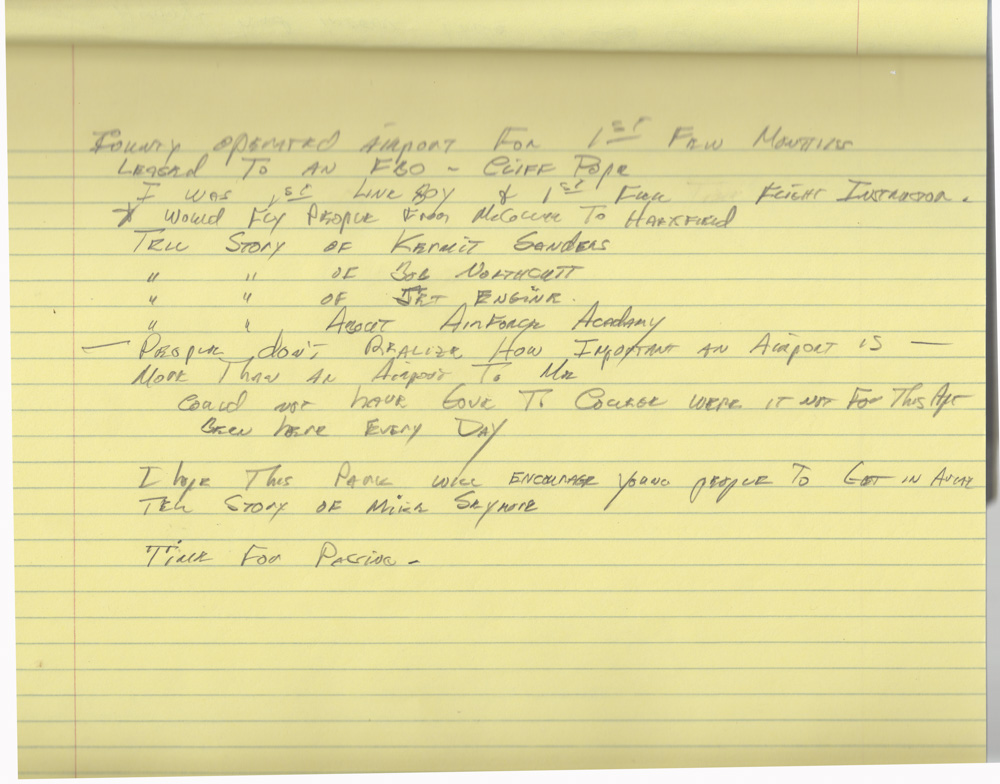 County operated Airport For 1st Few Months
Leased To an FBO - Cliff Pope
I was 1st Line Boy & 1st Flight Instructor.
Would Fly People From McCollum To Hartsfield
Tell Story of Kermit Sanders
" " of Bob Northcutt
" " of Jet Engine.
" " About Airforce Academy
— People don't Realize How Important an Airport is —
More Than an Airport To Me
Could not have Gone To College were it not For This Apt
Been here Every Day
I hope This Park will encourage young people To Get in
Tell Story of Mike
Time For Passing -